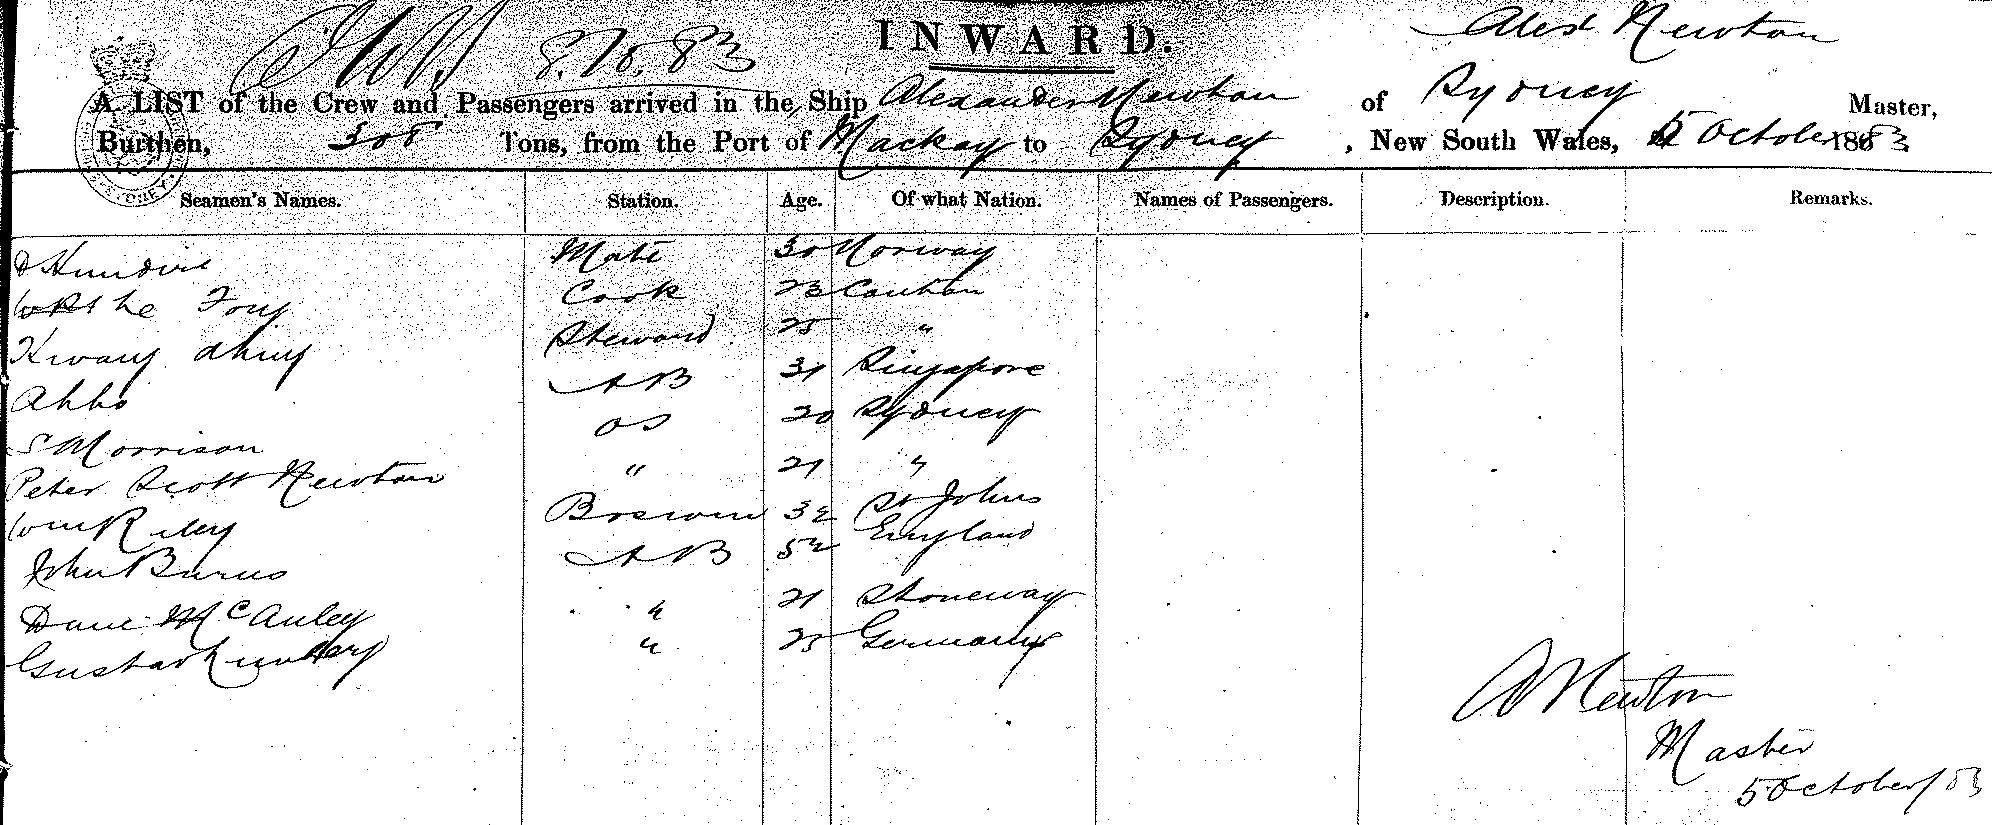 INWARD.
Alexr Newton
8.10.83
A LIST of the Crew and Passengers arrived in the Ship Alexander Newton of Sydney Master,
Burthen, 308 Tons, from the Port of Mackay to Sydney, New South Wales, 5 October 1883
Seamen's Names. Station. Age. Of what Nation. Names of Passengers. Description. Remarks.
Mate 30 Norway
Cook 23 Canton
Steward 25 "
Ahho AB 31 Singapore
S Morrison OS 20 Sydney
Peter Scott Newton " 21 "
Wm Riley Boswin 32 St Johns
John Burns AB 52 England
Dave McAuley " 21 Stoneway
Gustav " 25 Germany
A Newton
Master
5 October/83